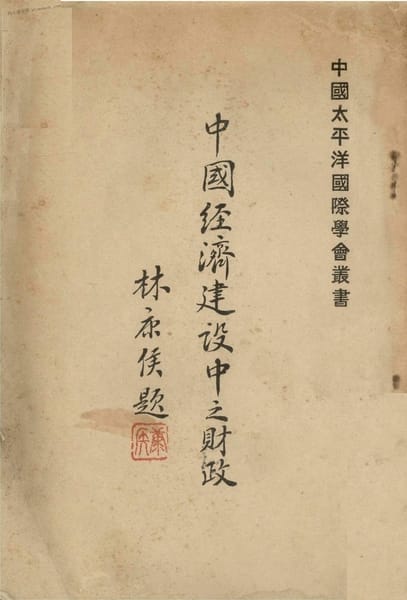 中國太平洋國際學會叢書
中國经濟建设中之財政
林康侯題
康侯